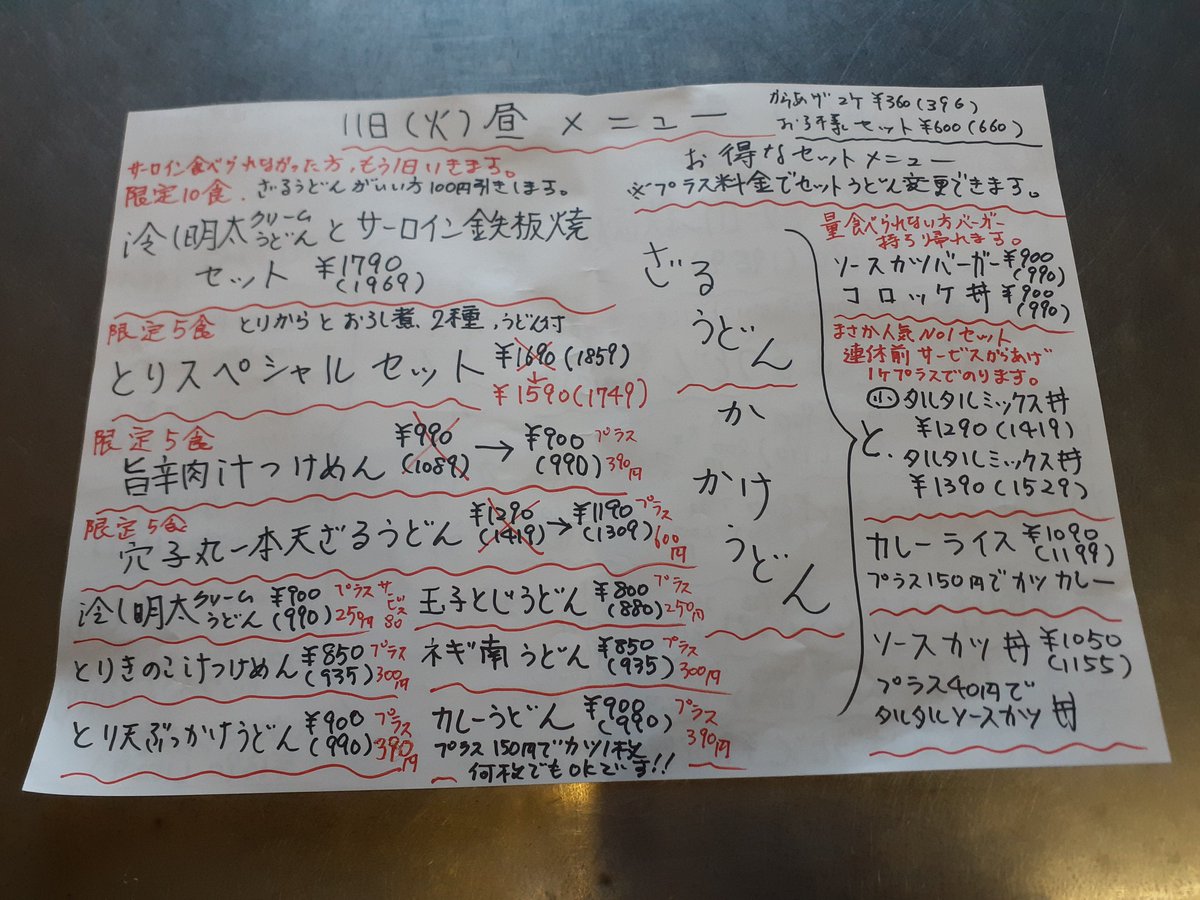 11日(火)昼メニュー
からあげ2ケ ¥360(396)
お子様セット ¥600(660)
サーロイン食べられなかった方、もう1日いきます。
限定10食、ざるうどんがいい方100円引きします。
冷し明太クリームうどんとサーロイン鉄板焼
セット ¥1790
(1969)
限定5食 とりからとおろし煮、2種、うどん付
とりスペシャルセット ¥1690(1859)
↓
¥1590(1749)
限定5食
旨辛肉汁つけめん ¥990(1089)→¥900(990) プラス390円
限定5食
穴子丸一本天ざるうどん ¥1290(1419)→¥1190(1309) プラス600円
冷し明太クリームうどん ¥900(990) プラス250円 サービス80
とりきのこ汁つけめん ¥850(935) プラス300円
とり天ぶっかけうどん ¥900(990) プラス390円
玉子とじうどん ¥800(880) プラス250円
ネギ南うどん ¥850(935) プラス300円
カレーうどん ¥900(990) プラス390円
プラス150円でカツ1枚
何枚でもOKです!!
お得なセットメニュー
※プラス料金でセットうどん変更できます。
ざる
うどん
か
かけ
うどん
と、
量食べられない方バーガー
持ち帰れます。
ソースカツバーガー ¥900(990)
コロッケ丼 ¥900(990)
まさか人気NO1セット
連休前サービスからあげ
1ケプラスでのります。
小 タルタルミックス丼
¥1290(1419)
タルタルミックス丼
¥1390(1529)
カレーライス ¥1090(1199)
プラス150円でカツカレー
ソースカツ丼 ¥1050(1155)
プラス40円で
タルタルソースカツ丼